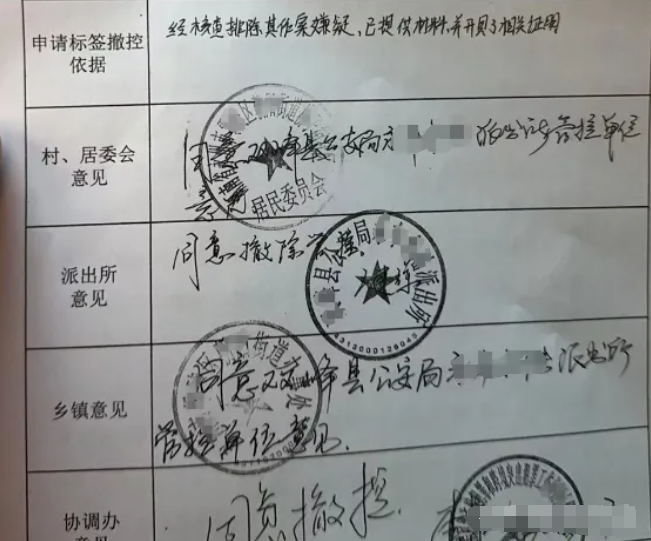 申请标签撤控
依据
经核查排除其作案嫌疑,已提供材料并开具了相关证明
村、居委会
意见
同意双峰县公安局
派出所管控单位
意见
居民委员会
派出所
意见
同意撤除
县公安局
派出所
4313000126045
乡镇意见
同意双峰县公安局
派出所
管控单位意见.
街道
协调办
意见
同意撤控.